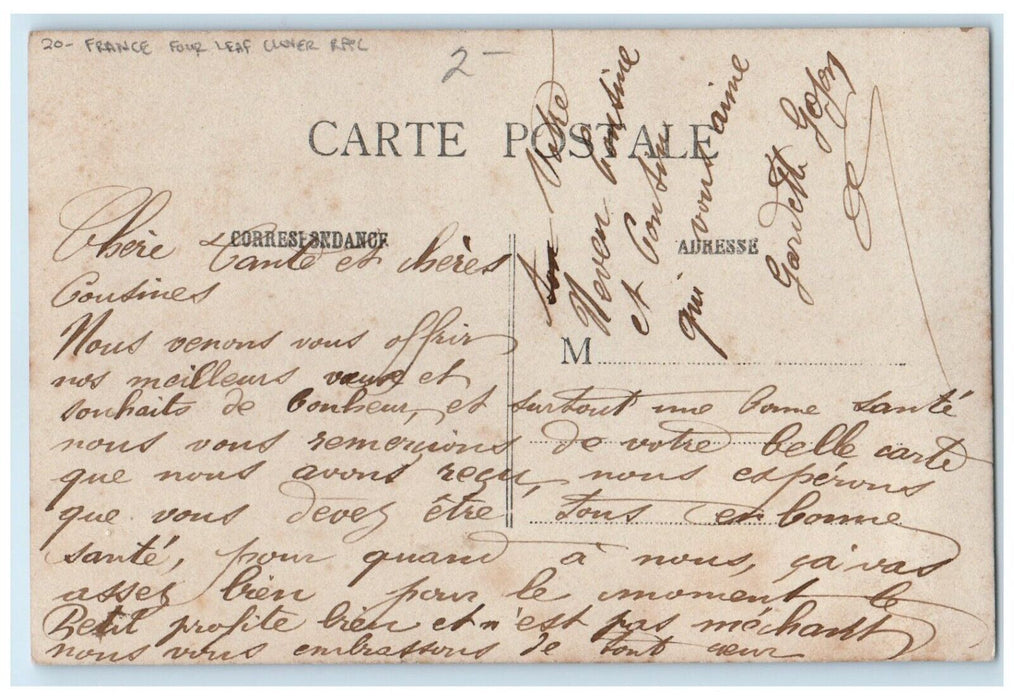 20- FRANCE FOUR LEAF CLOVER RPPC
2-
CARTE POSTALE
CORRESPONDANCE
ADRESSE
M
Chère Tante et chères
Cousines
Nous venons vous offrir
nos meilleurs vœux et
souhaits de bonheur, et surtout une bonne santé
nous vous remerçions de votre belle carte
que nous avons reçu, nous espérons
que vous devez être tous en bonne
santé, pour quand à nous, ça vas
assez bien pour le moment le
Petit profite bien et n'est pas méchant
nous vous embrassons de tout cœur
Votre
Neven Cousine
et Cousin
qui vous aime